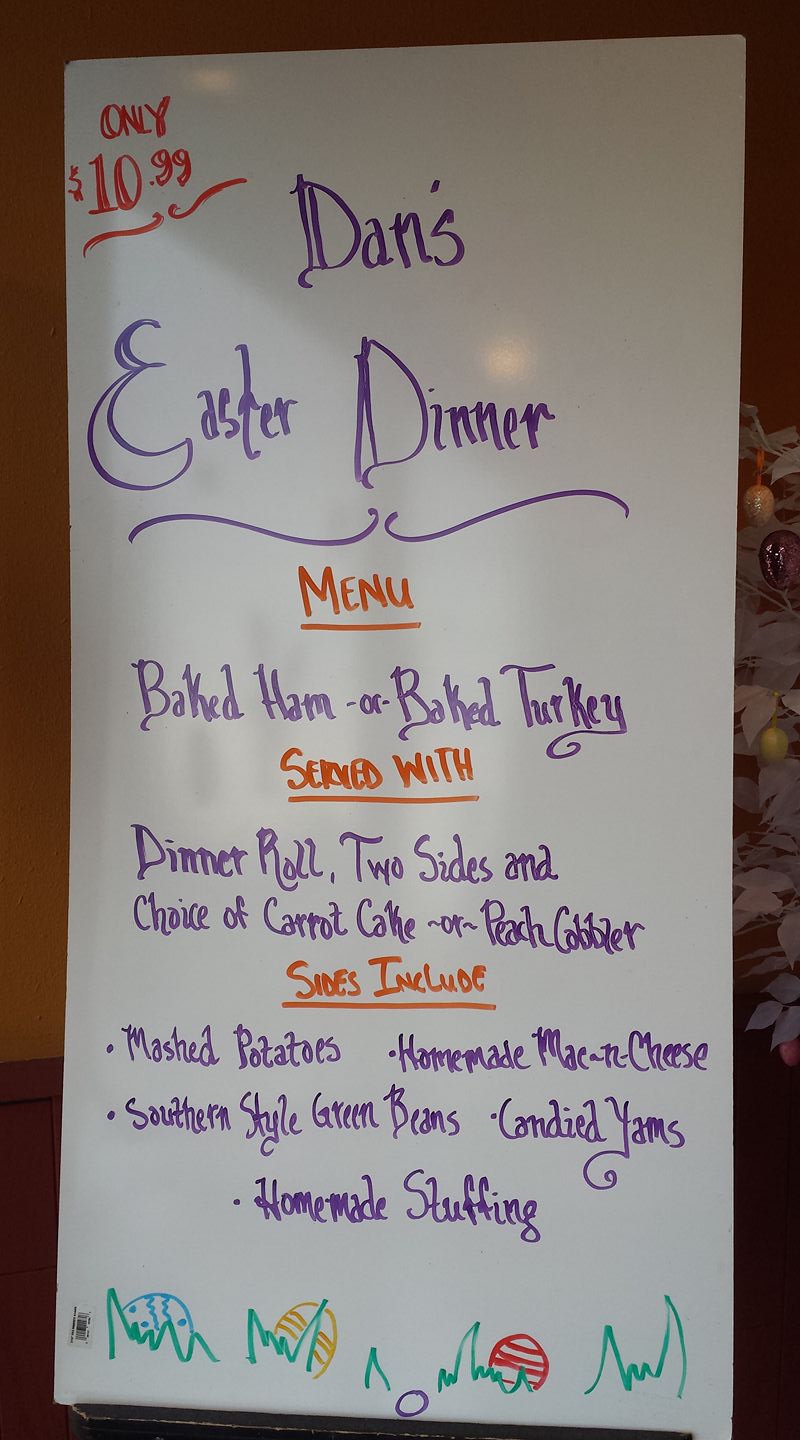 ONLY
$10.99
Dan's
Easter Dinner
MENU
Baked Ham -or- Baked Turkey
SERVED WITH
Dinner Roll, Two Sides and
Choice of Carrot Cake ~or~ Peach Cobbler
SIDES INCLUDE
• Mashed Potatoes • Homemade Mac-n-Cheese
• Southern Style Green Beans • Candied Yams
• Homemade Stuffing